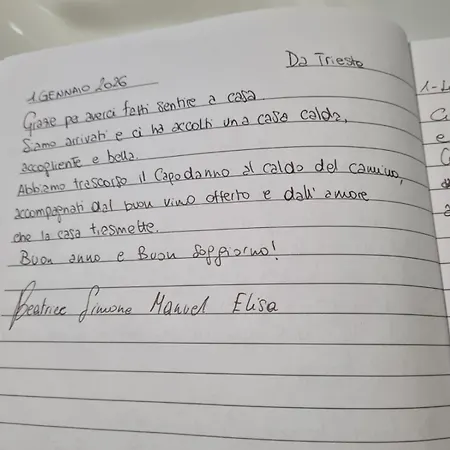 Da Trieste
1 GENNAIO 2026
Grazie per averci fatti sentire a casa.
Siamo arrivati e ci ha accolti una casa calda,
accogliente e bella.
Abbiamo trascorso il Capodanno al caldo del camino,
accompagnati dal buon vino offerto e dall'amore
che la casa trasmette.
Buon anno e Buon Soggiorno!
Beatrice Simone Manuel Elisa
1-